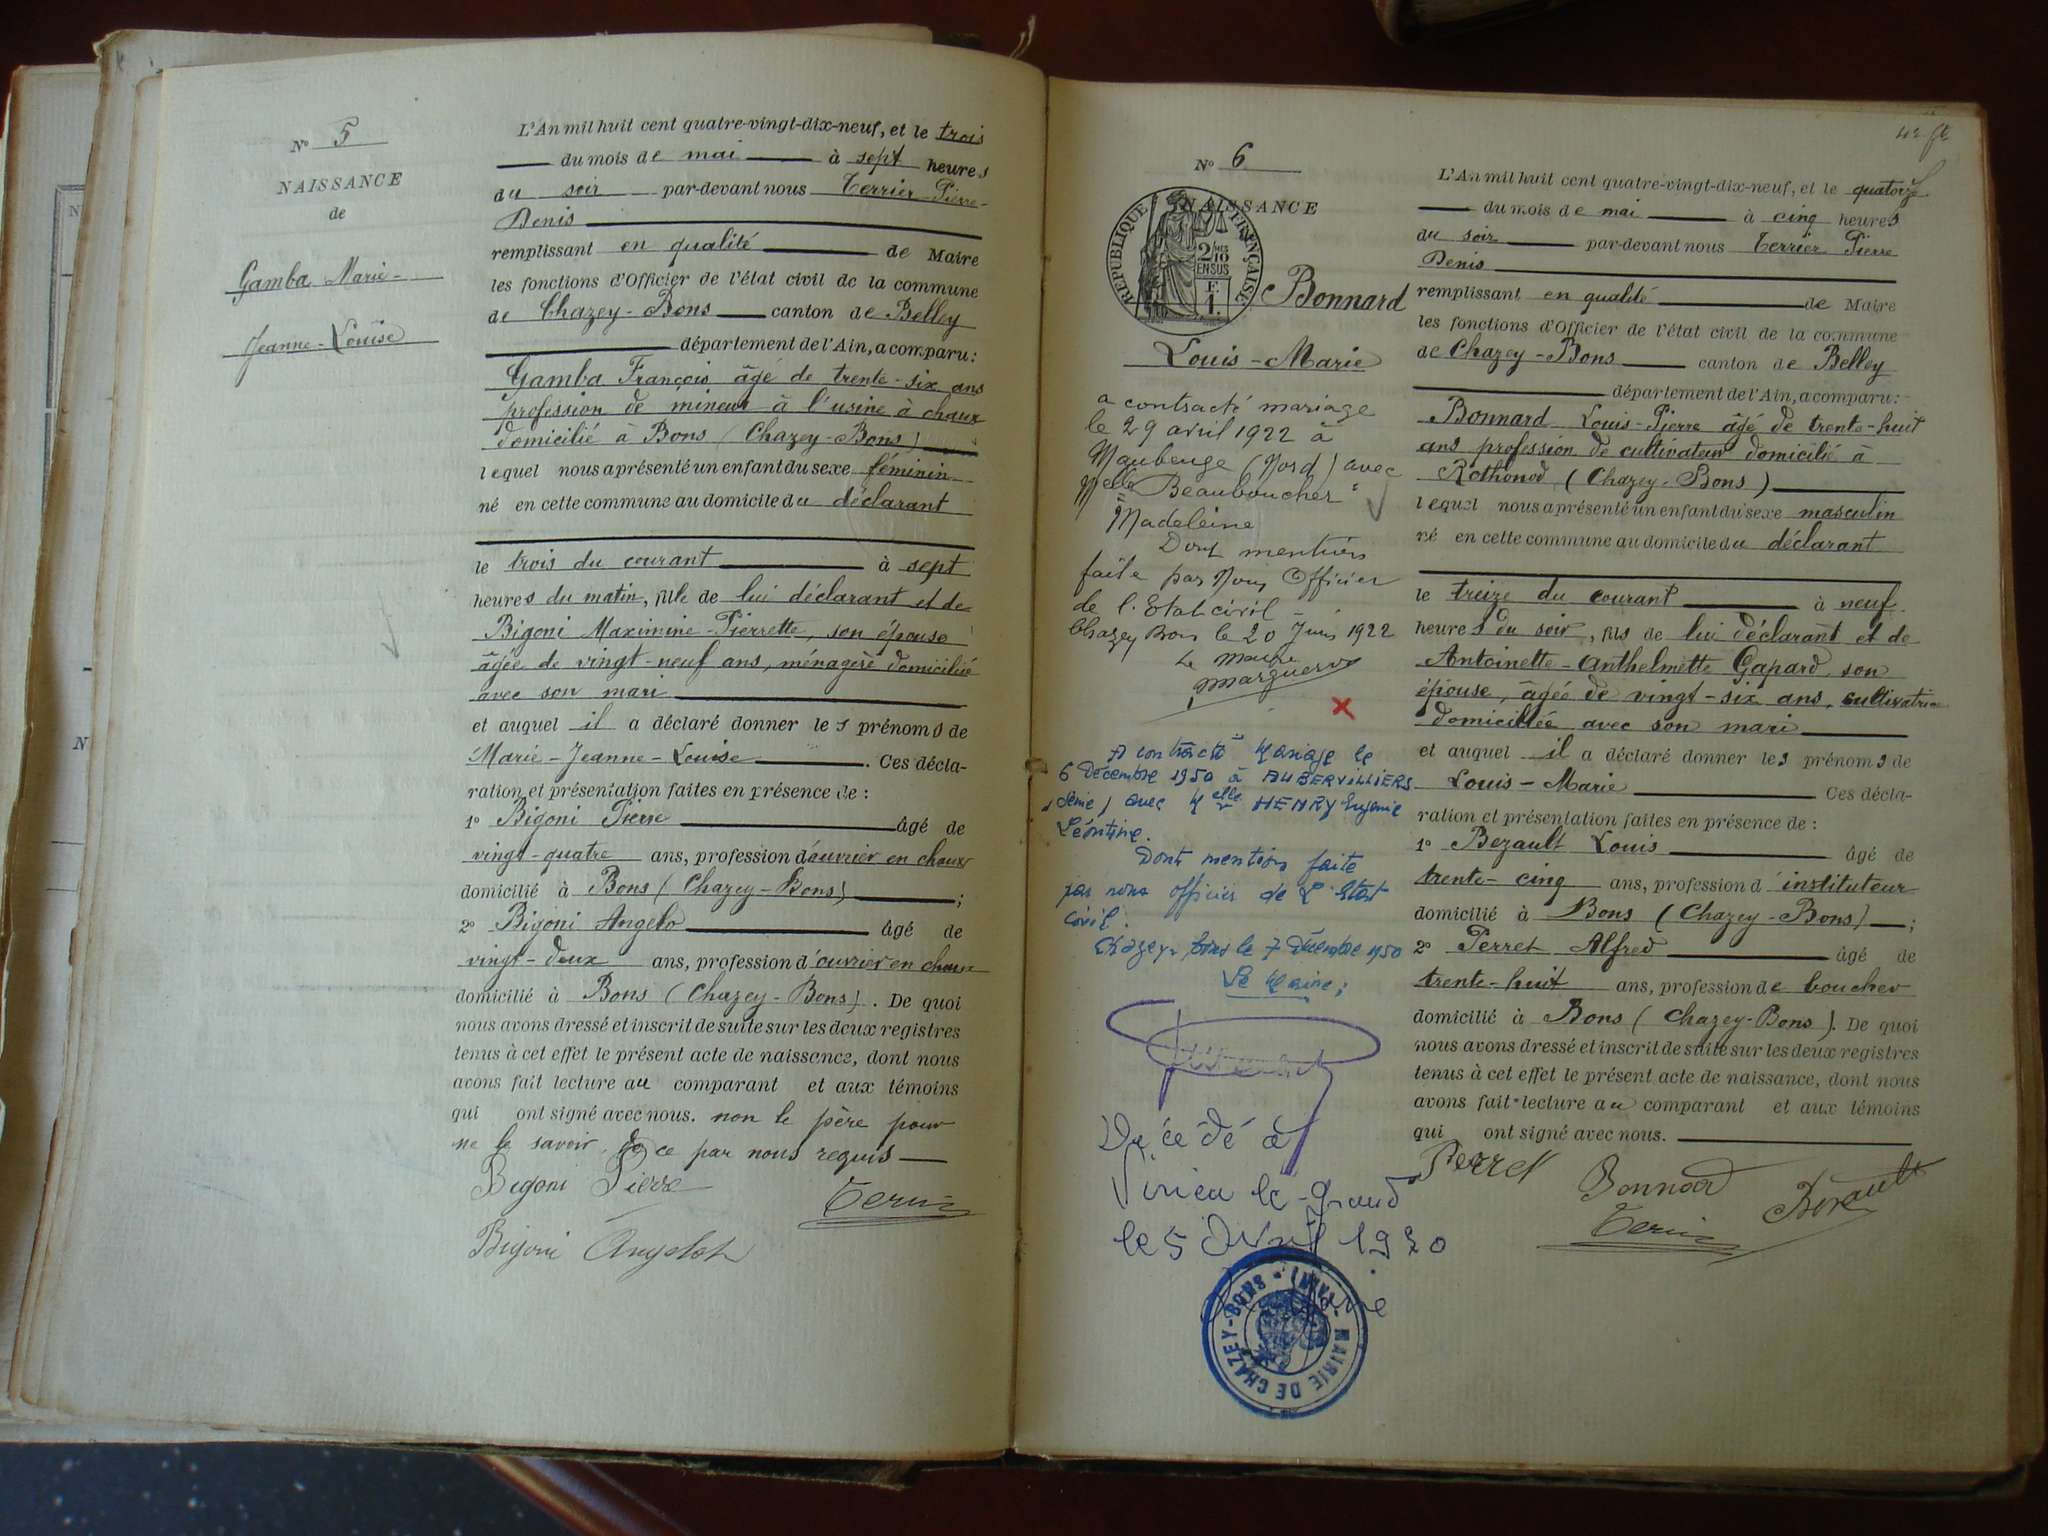 N° 5
NAISSANCE
de
Gamba Marie-
Jeanne-Louise
L'An mil huit cent quatre-vingt-dix-neuf, et le trois
du mois de mai à sept heures
du soir par-devant nous Terrier Pierre-
Denis
remplissant en qualité de Maire
les fonctions d'Officier de l'état civil de la commune
de Chazey-Bons canton de Belley
département de l'Ain, a comparu:
Gamba François âgé de trente-six ans
profession de mineur à l'usine à chaux
domicilié à Bons (Chazey-Bons)
lequel nous a présenté un enfant du sexe féminin
né en cette commune au domicile du déclarant
le trois du courant à sept
heures du matin, fille de lui déclarant et de
Bigoni Maximine-Pierrette, son épouse
âgée de vingt-neuf ans, ménagère domiciliée
avec son mari
et auquel il a déclaré donner les prénoms de
Marie-Jeanne-Louise. Ces décla-
ration et présentation faites en présence de:
1° Bigoni Pierre âgé de
vingt-quatre ans, profession d'ouvrier en chaux
domicilié à Bons (Chazey-Bons);
2° Bigoni Angelo âgé de
vingt-deux ans, profession d'ouvrier en chaux
domicilié à Bons (Chazey-Bons). De quoi
nous avons dressé et inscrit de suite sur les deux registres
tenus à cet effet le présent acte de naissance, dont nous
avons fait lecture au comparant et aux témoins
qui ont signé avec nous. non le père pour
ne le savoir de ce par nous requis
Bigoni Pierre
Bigoni Angelot
N° 6
NAISSANCE
RÉPUBLIQUE FRANÇAISE
2/10
EN SUS
F.
1.
Bonnard
Louis-Marie
a contracté mariage
le 29 avril 1922 à
Maubeuge (Nord) avec
Melle "Beauboucher"
Madeleine
Dont mention
faite par Nous Officier
de l'Etat civil
Chazey Bons le 20 Juin 1922
Le maire
A contracté Mariage le
6 Décembre 1950 à AUBERVILLIERS
(Seine) avec Melle HENRY Eugénie
Léontine.
Dont mention faite
par nous officier de L'Etat
Civil.
Chazey-Bons le 7 Décembre 1950
Le Maire;
Décédé à
Virieu le-Grand
le 5 Avril
MAIRIE DE CHAZEY-BONS (AIN)
L'An mil huit cent quatre-vingt-dix-neuf, et le quatorze
du mois de mai à cinq heures
du soir par-devant nous Terrier Pierre
Denis
remplissant en qualité de Maire
les fonctions d'Officier de l'état civil de la commune
de Chazey-Bons canton de Belley
département de l'Ain, a comparu:
Bonnard Louis-Pierre âgé de trente-huit
ans profession de cultivateur domicilié à
Rothonod (Chazey-Bons)
lequel nous a présenté un enfant du sexe masculin
né en cette commune au domicile du déclarant
le treize du courant à neuf
heures du soir, fils de lui déclarant et de
Antoinette-Anthelmette Gapard son
épouse, âgée de vingt-six ans, cultivatrice
domiciliée avec son mari
et auquel il a déclaré donner les prénoms de
Louis-Marie Ces décla-
ration et présentation faites en présence de:
1° Bezault Louis âgé de
trente-cinq ans, profession d'instituteur
domicilié à Bons (Chazey-Bons);
2° Perret Alfred âgé de
trente-huit ans, profession de boucher
domicilié à Bons (Chazey-Bons). De quoi
nous avons dressé et inscrit de suite sur les deux registres
tenus à cet effet le présent acte de naissance, dont nous
avons fait lecture au comparant et aux témoins
qui ont signé avec nous.
Perret Bonnard